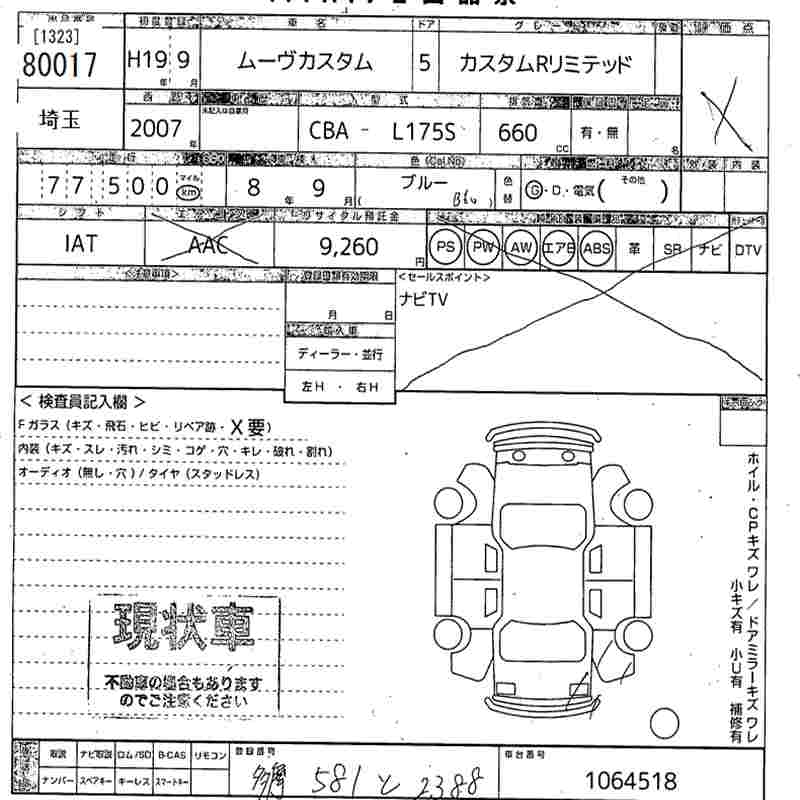 [1323]
80017
車名
ドア
H19 9
年 月
ムーヴカスタム
5
カスタムRリミテッド
評価点
埼玉
2007
年
型式
CBA - L175S
660
CC
有・無
名
77500
マイル
km
8年 9月
色(Col.No)
ブルー
色替
G・D・電気( その他 )
内装
シフト
IAT
AAC
リサイクル預託金
9,260
円
PS
PW
AW
エアB
ABS
革
SR
ナビ
DTV
<注意事項>
登録書類有効期限
月 日
輸入車
ディーラー・並行
左H・右H
<セールスポイント>
ナビTV
<検査員記入欄>
Fガラス(キズ・飛石・ヒビ・リペア跡・X要)
内装(キズ・スレ・汚れ・シミ・コゲ・穴・キレ・破れ・割れ)
オーディオ(無し・穴)/タイヤ(スタッドレス)
ホイル・CPキズ ワレ/ドアミラーキズ ワレ
小キズ有 小U有 補修有
現状車
不動車の場合もあります
のでご注意ください
取説
ナビ取説
ロム/SD
B-CAS
リモコン
ナンバー
スペアキー
キーレス
スマートキー
登録番号
多摩 581 と 2388
車台番号
1064518